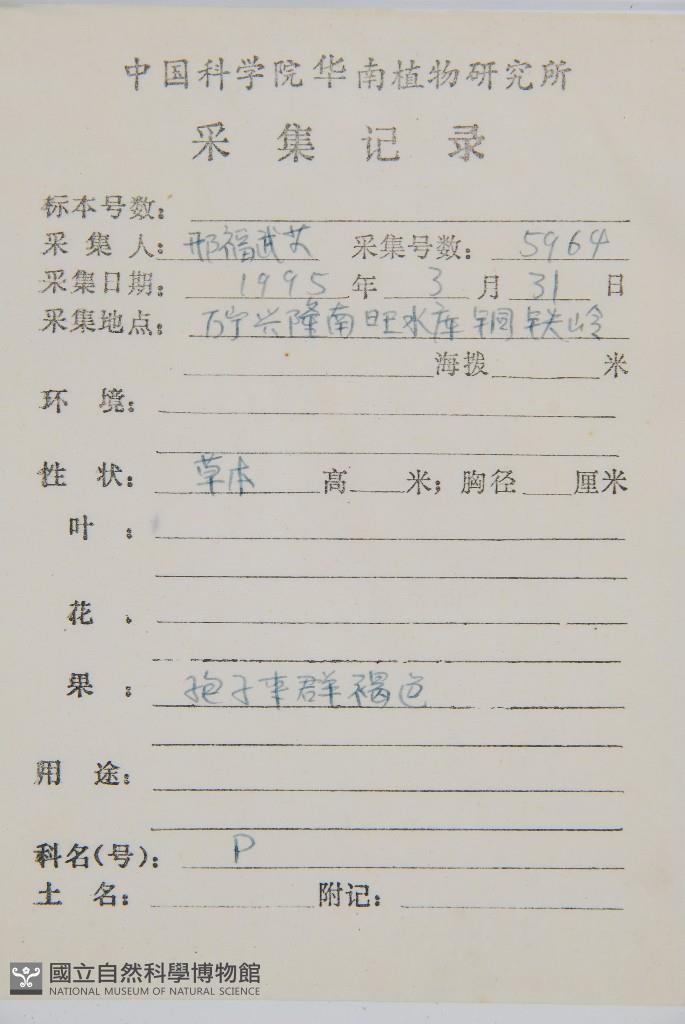 中国科学院华南植物研究所
采集记录
标本号数:
采集人: 邢福武 采集号数: 5964
采集日期: 1995年3月31日
采集地点: 万宁兴隆南旺水库铜铁岭
海拨 米
环境:
性状: 草本 高 米; 胸径 厘米
叶:
花:
果: 孢子 群褐色
用途:
科名(号): P
土名: 附记:
國立自然科學博物館
NATIONAL MUSEUM OF NATURAL SCIENCE